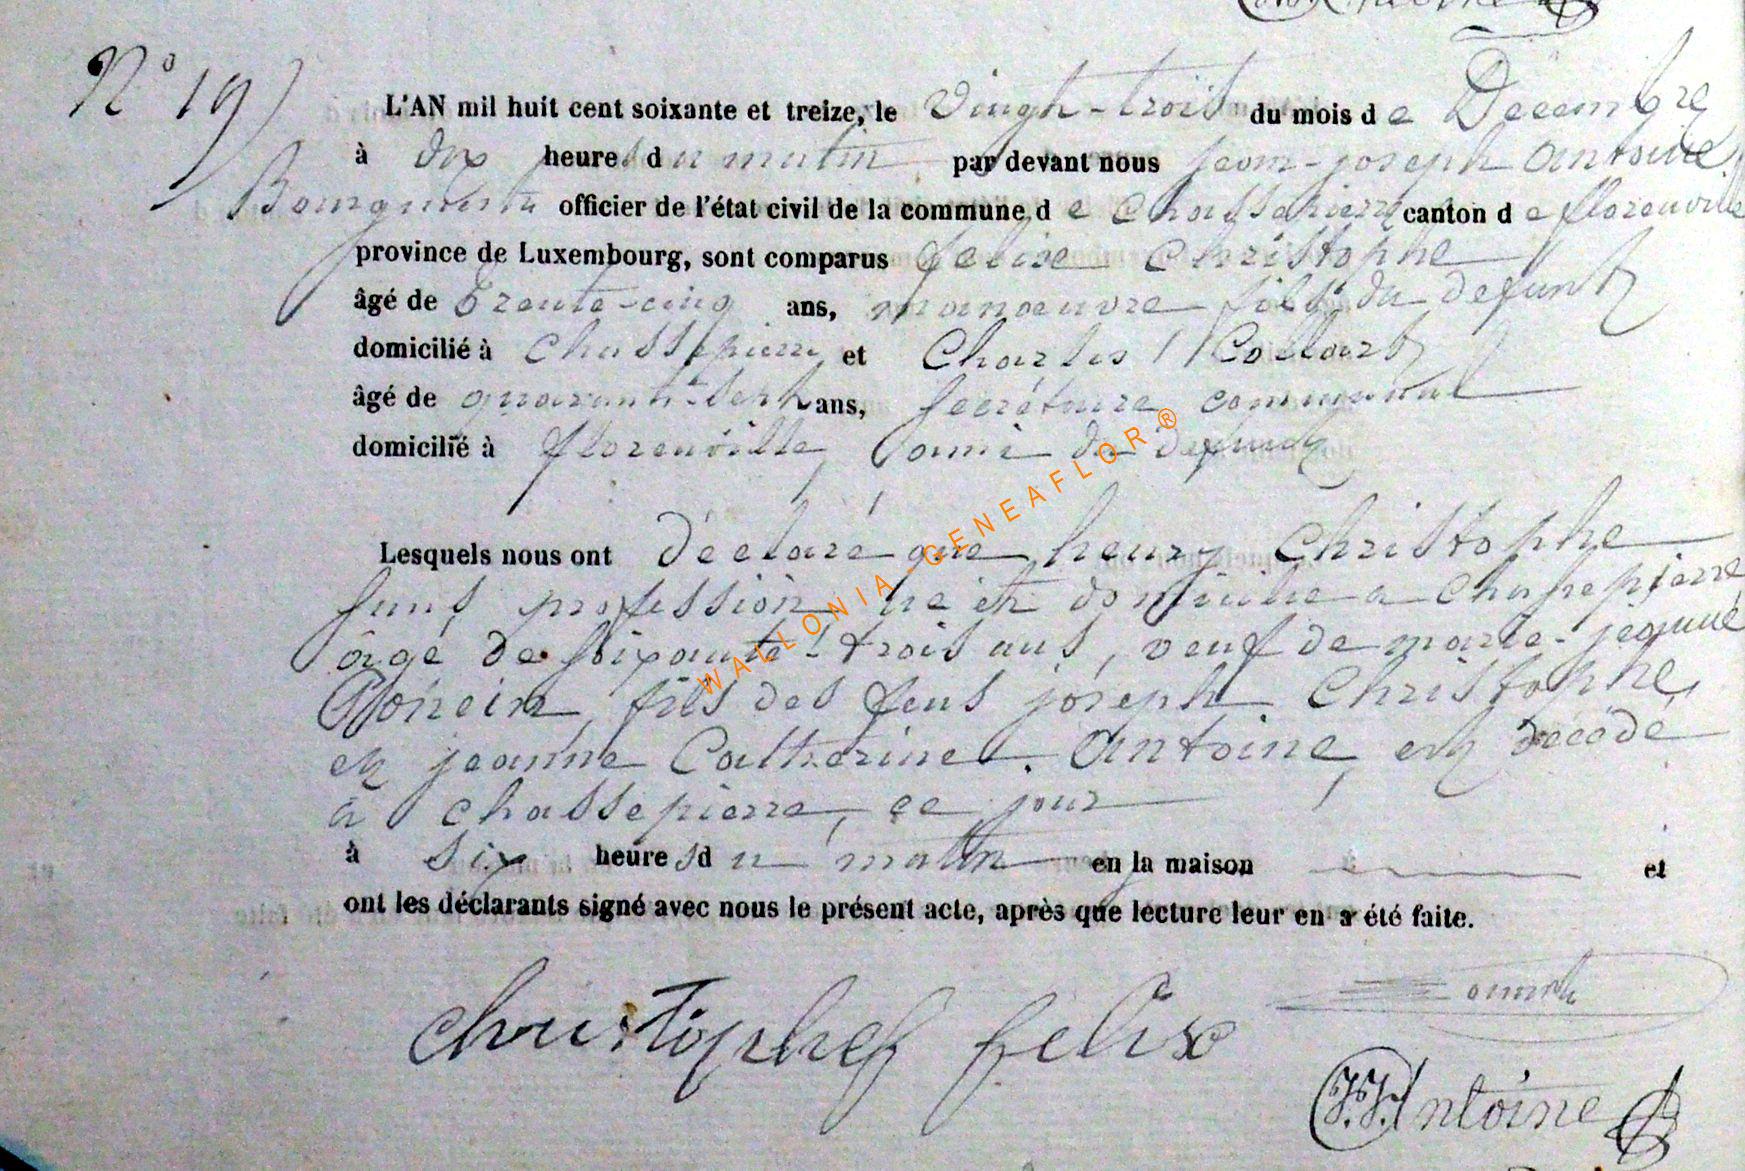 N° 19
L'AN mil huit cent soixante et treize, le Vingt-trois du mois de Decembre
à dix heures du matin par devant nous jean-joseph Antoine
Bourgmestre officier de l'état civil de la commune de Chassepierre canton de florenville
province de Luxembourg, sont comparus felixe Christophe
âgé de trente-cinq ans, manoeuvre fils du defunt
domicilié à Chassepierre et Charles Collart
âgé de quarante-sept ans, secrétaire communal
domicilié à florenville, ami du defunt
Lesquels nous ont déclaré que henry Christophe
sans profession né et domicilie a Chassepierre
âgé de soixante-trois ans, veuf de marie-jeanne
fils des feus joseph Christophe,
et jeanne Catherine Antoine, est décédé
à chassepierre, ce jour
à six heures du matin en la maison et
ont les déclarants signé avec nous le présent acte, après que lecture leur en a été faite.
christophe felix
J.J. Antoine
WALLONIA-GENEAFLOR®